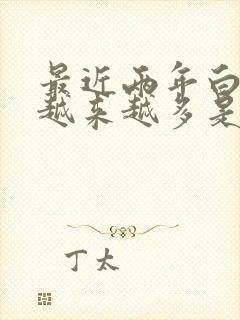 最近两年白
越来越多是
丁太